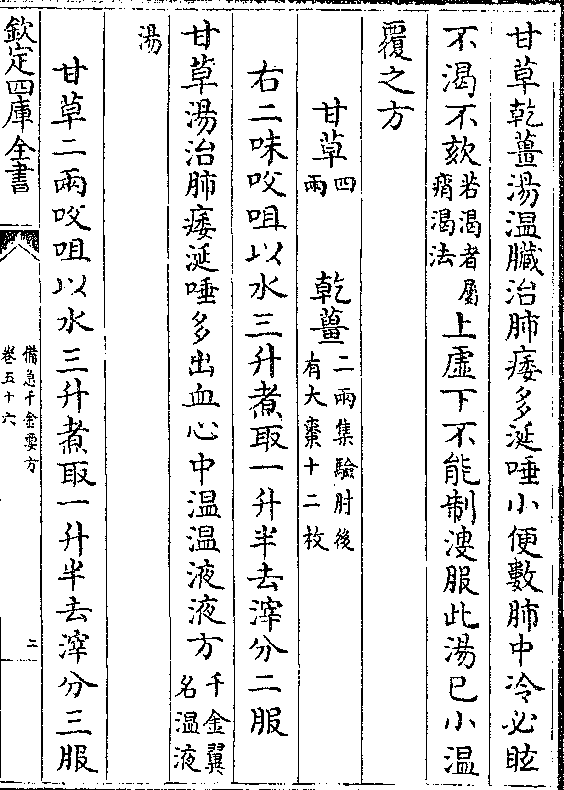 甘草乾薑湯温臟治肺痿多涎唾小便數肺中冷必眩
不渴不欬若渴者屬痟渴法上虛下不能制溲服此湯已小温
覆之方
甘草四兩 乾薑二兩集驗肘後有大棗十二枚
右二味㕮咀以水三升煮取一升半去滓分二服
甘草湯治肺痿涎唾多出血心中温温液液方千金翼名温液
湯
甘草二兩㕮咀以水三升煮取一升半去滓分三服
欽定四庫全書
備急千金要方
卷五十六
二